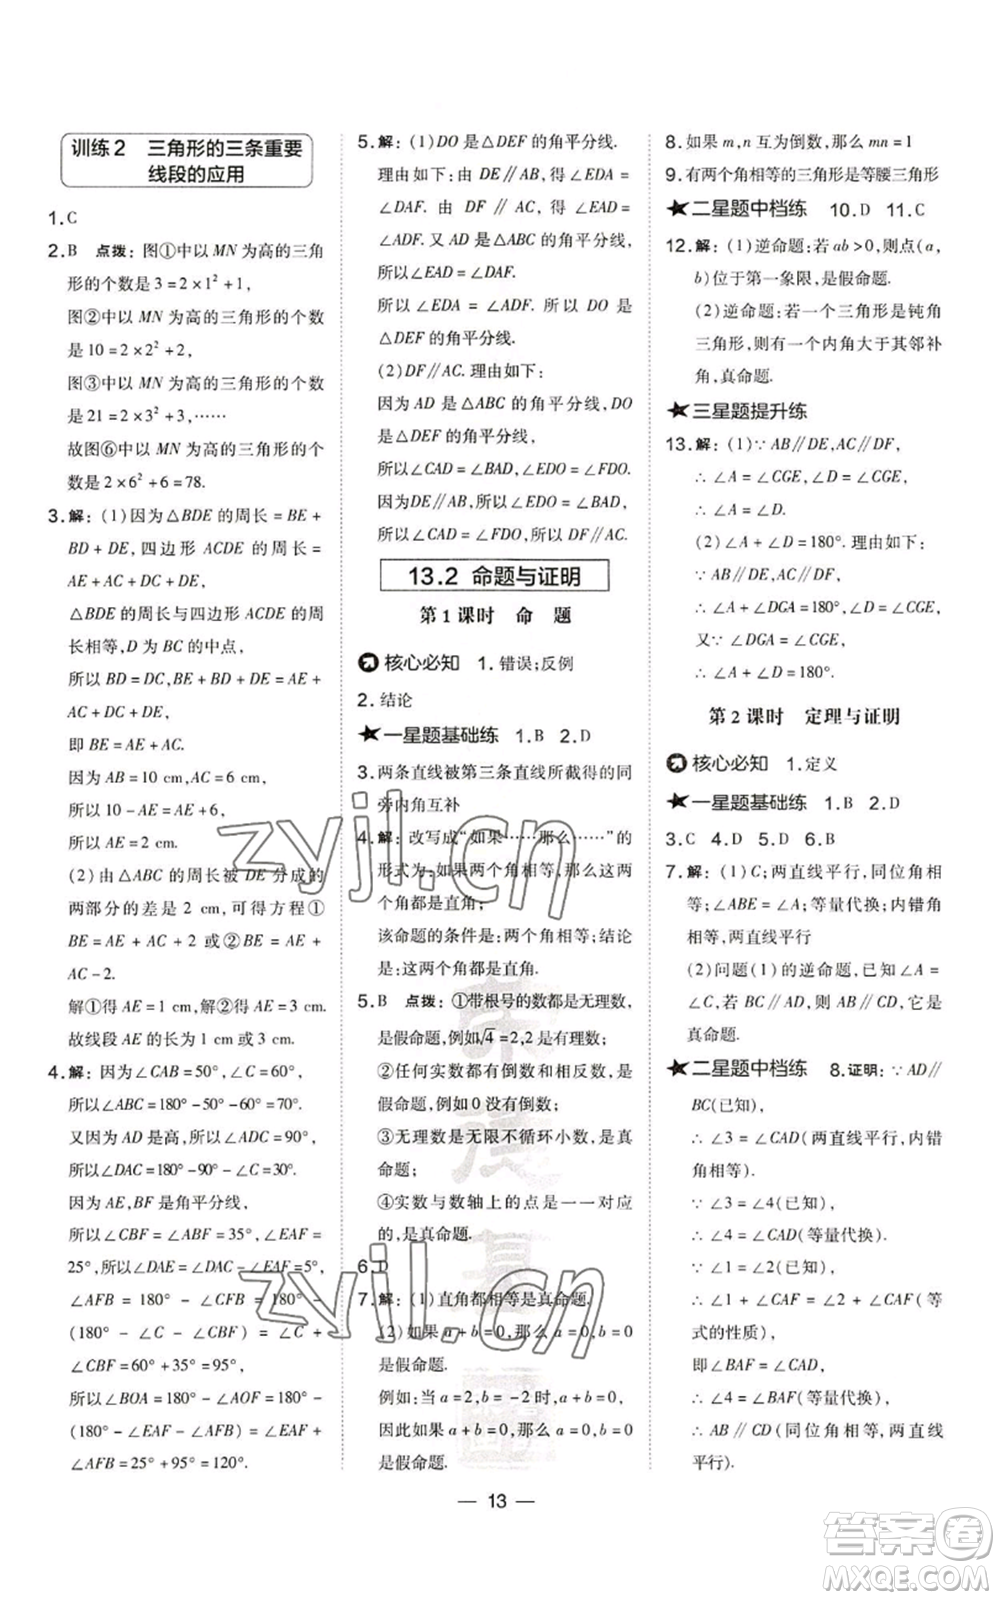 训练2 三角形的三条重要
线段的应用
1.C
2.B 点拨：图①中以 MN 为高的三角
形的个数是 3=2×1²+1,
图②中以 MN 为高的三角形的个数
是 10=2×2²+2,
图③中以 MN 为高的三角形的个数
是 21=2×3²+3,……
故图⑥中以 MN 为高的三角形的个
数是 2×6²+6=78.
3.解：(1)因为△BDE 的周长=BE+
BD+DE,四边形 ACDE 的周长=
AE+AC+DC+DE,
△BDE 的周长与四边形 ACDE 的周
长相等,D 为 BC 的中点,
所以 BD=DC,BE+BD+DE=AE+
AC+DC+DE,
即 BE=AE+AC.
因为 AB=10 cm,AC=6 cm,
所以 10-AE=AE+6,
所以 AE=2 cm.
(2)由△ABC 的周长被 DE 分成的
两部分的差是 2 cm,可得方程①
BE=AE+AC+2 或②BE=AE+
AC-2.
解①得 AE=1 cm,解②得 AE=3 cm.
故线段 AE 的长为 1 cm 或 3 cm.
4.解：因为∠CAB=50°,∠C=60°,
所以∠ABC=180°-50°-60°=70°.
又因为 AD 是高,所以∠ADC=90°,
所以∠DAC=180°-90°-∠C=30°.
因为 AE,BF 是角平分线,
所以∠CBF=∠ABF=35°,∠EAF=
25°,所以∠DAE=∠DAC-∠EAF=5°,
∠AFB=180°-∠CFB=180°-
(180°-∠C-∠CBF)=∠C+
∠CBF=60°+35°=95°,
所以∠BOA=180°-∠AOF=180°-
(180°-∠EAF-∠AFB)=∠EAF+
∠AFB=25°+95°=120°.
5.解：(1)DO 是△DEF 的角平分线.
理由如下:由 DE∥AB,得∠EDA=
∠DAF.由 DF∥AC,得∠EAD=
∠ADF.又 AD 是△ABC 的角平分线,
所以∠EAD=∠DAF.
所以∠EDA=∠ADF.所以 DO 是
△DEF 的角平分线.
(2)DF∥AC.理由如下:
因为 AD 是△ABC 的角平分线,DO
是△DEF 的角平分线,
所以∠CAD=∠BAD,∠EDO=∠FDO.
因为DE∥AB,所以∠EDO=∠BAD,
所以∠CAD=∠FDO,所以 DF∥AC.
13.2 命题与证明
第1课时 命 题
核心必知 1.错误;反例
2.结论
一星题基础练 1.B 2.D
3.两条直线被第三条直线所截得的同
旁内角互补
4.解：改写成“如果……那么……”的
形式为:如果两个角相等,那么这两
个角都是直角;
该命题的条件是:两个角相等;结论
是:这两个角都是直角.
5.B 点拨：①带根号的数都是无理数,
是假命题,例如√4=2,2是有理数;
②任何实数都有倒数和相反数,是
假命题,例如 0 没有倒数;
③无理数是无限不循环小数,是真
命题;
④实数与数轴上的点是一一对应
的,是真命题.
6.D
7.解：(1)直角都相等是真命题.
(2)如果 a+b=0,那么 a=0,b=0
是假命题.
例如:当 a=2,b=-2时,a+b=0,
因此如果 a+b=0,那么 a=0,b=0
是假命题.
8.如果 m,n 互为倒数,那么 mn=1
9.有两个角相等的三角形是等腰三角形
二星题中档练 10.D 11.C
12.解：(1)逆命题:若 ab>0,则点(a,
b)位于第一象限,是假命题.
(2)逆命题:若一个三角形是钝角
三角形,则有一个内角大于其邻补
角,真命题.
三星题提升练
13.解：(1)∵AB∥DE,AC∥DF,
∴∠A=∠CGE,∠D=∠CGE,
∴∠A=∠D.
(2)∠A+∠D=180°.理由如下:
∵AB∥DE,AC∥DF,
∴∠A+∠DGA=180°,∠D=∠CGE,
又∵∠DGA=∠CGE,
∴∠A+∠D=180°.
第2课时 定理与证明
核心必知 1.定义
一星题基础练 1.B 2.D
3.C 4.D 5.D 6.B
7.解：(1)C;两直线平行,同位角相
等;∠ABE=∠A;等量代换;内错角
相等,两直线平行
(2)问题(1)的逆命题,已知∠A=
∠C,若 BC∥AD,则 AB∥CD,它是
真命题.
二星题中档练 8.证明：∵AD∥
BC(已知),
∴∠3=∠CAD(两直线平行,内错
角相等).
∵∠3=∠4(已知),
∴∠4=∠CAD(等量代换).
∵∠1=∠2(已知),
∴∠1+∠CAF=∠2+∠CAF(等
式的性质),
即∠BAF=∠CAD,
∴∠4=∠BAF(等量代换),
∴AB∥CD(同位角相等,两直线
平行).
— 13 —
zyjl.cn
zyjl.cn
答案圈
MXQE.COM